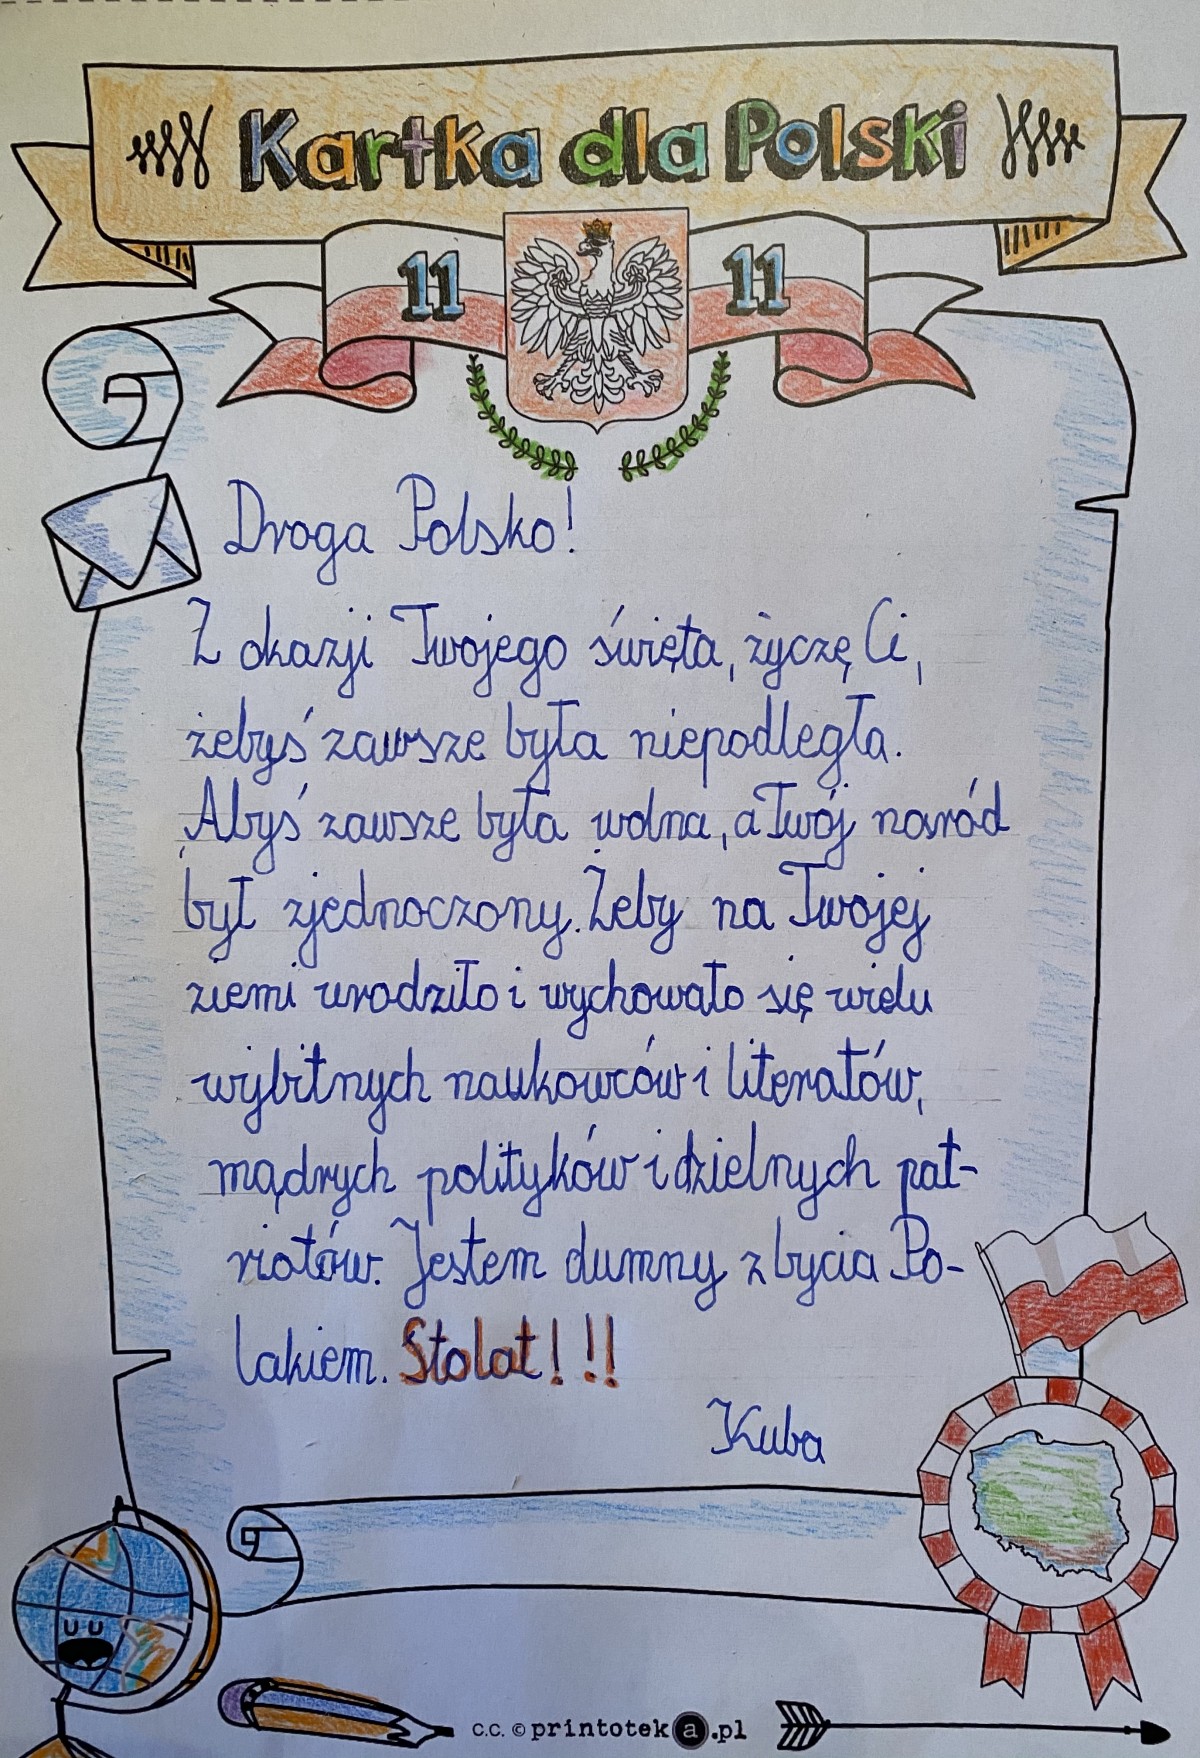 Kartka dla Polski
11 11
Droga Polsko!
Z okazji Twojego święta, życzę Ci,
żebyś zawsze była niepodległa.
Abyś zawsze była wolna, a Twój naród
był zjednoczony. Żeby na Twojej
ziemi urodziło i wychowało się wielu
wybitnych naukowców i literatów,
mądrych polityków i dzielnych pat-
riotów. Jestem dumny z bycia Po-
lakiem. Stolat! !!
Kuba
c.c. © printoteka.pl